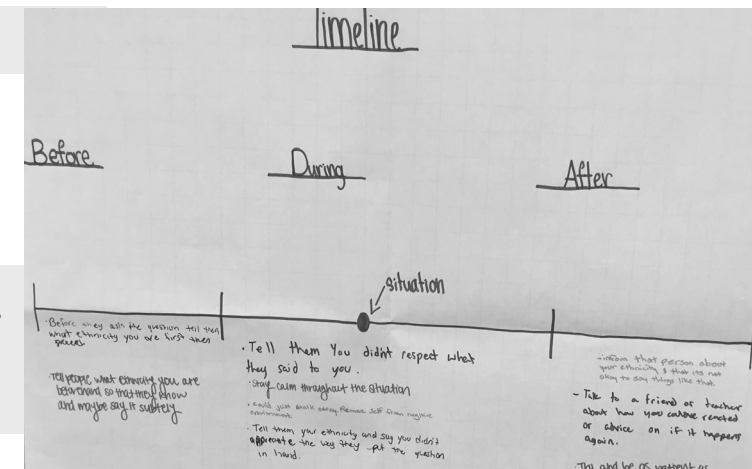 Timeline
Before
During
After
situation
·Before they ask the question tell then
what ethnicity you are first then
·Tell people what ethnicity you are
beforehand so that they know
and maybe say it subtely
·Tell them You didn't respect what
they said to you.
·Stay calm throughout the situation
·could just walk away. Remove self from negative
environment.
·Tell them your ethnicity and say you didn't
the way they put the question
in hand.
-inform that person about
your ethnicity & that its not
okay to say things like that.
- Talk to a friend or teacher
about how you reacted
or advice on if it happens
again.